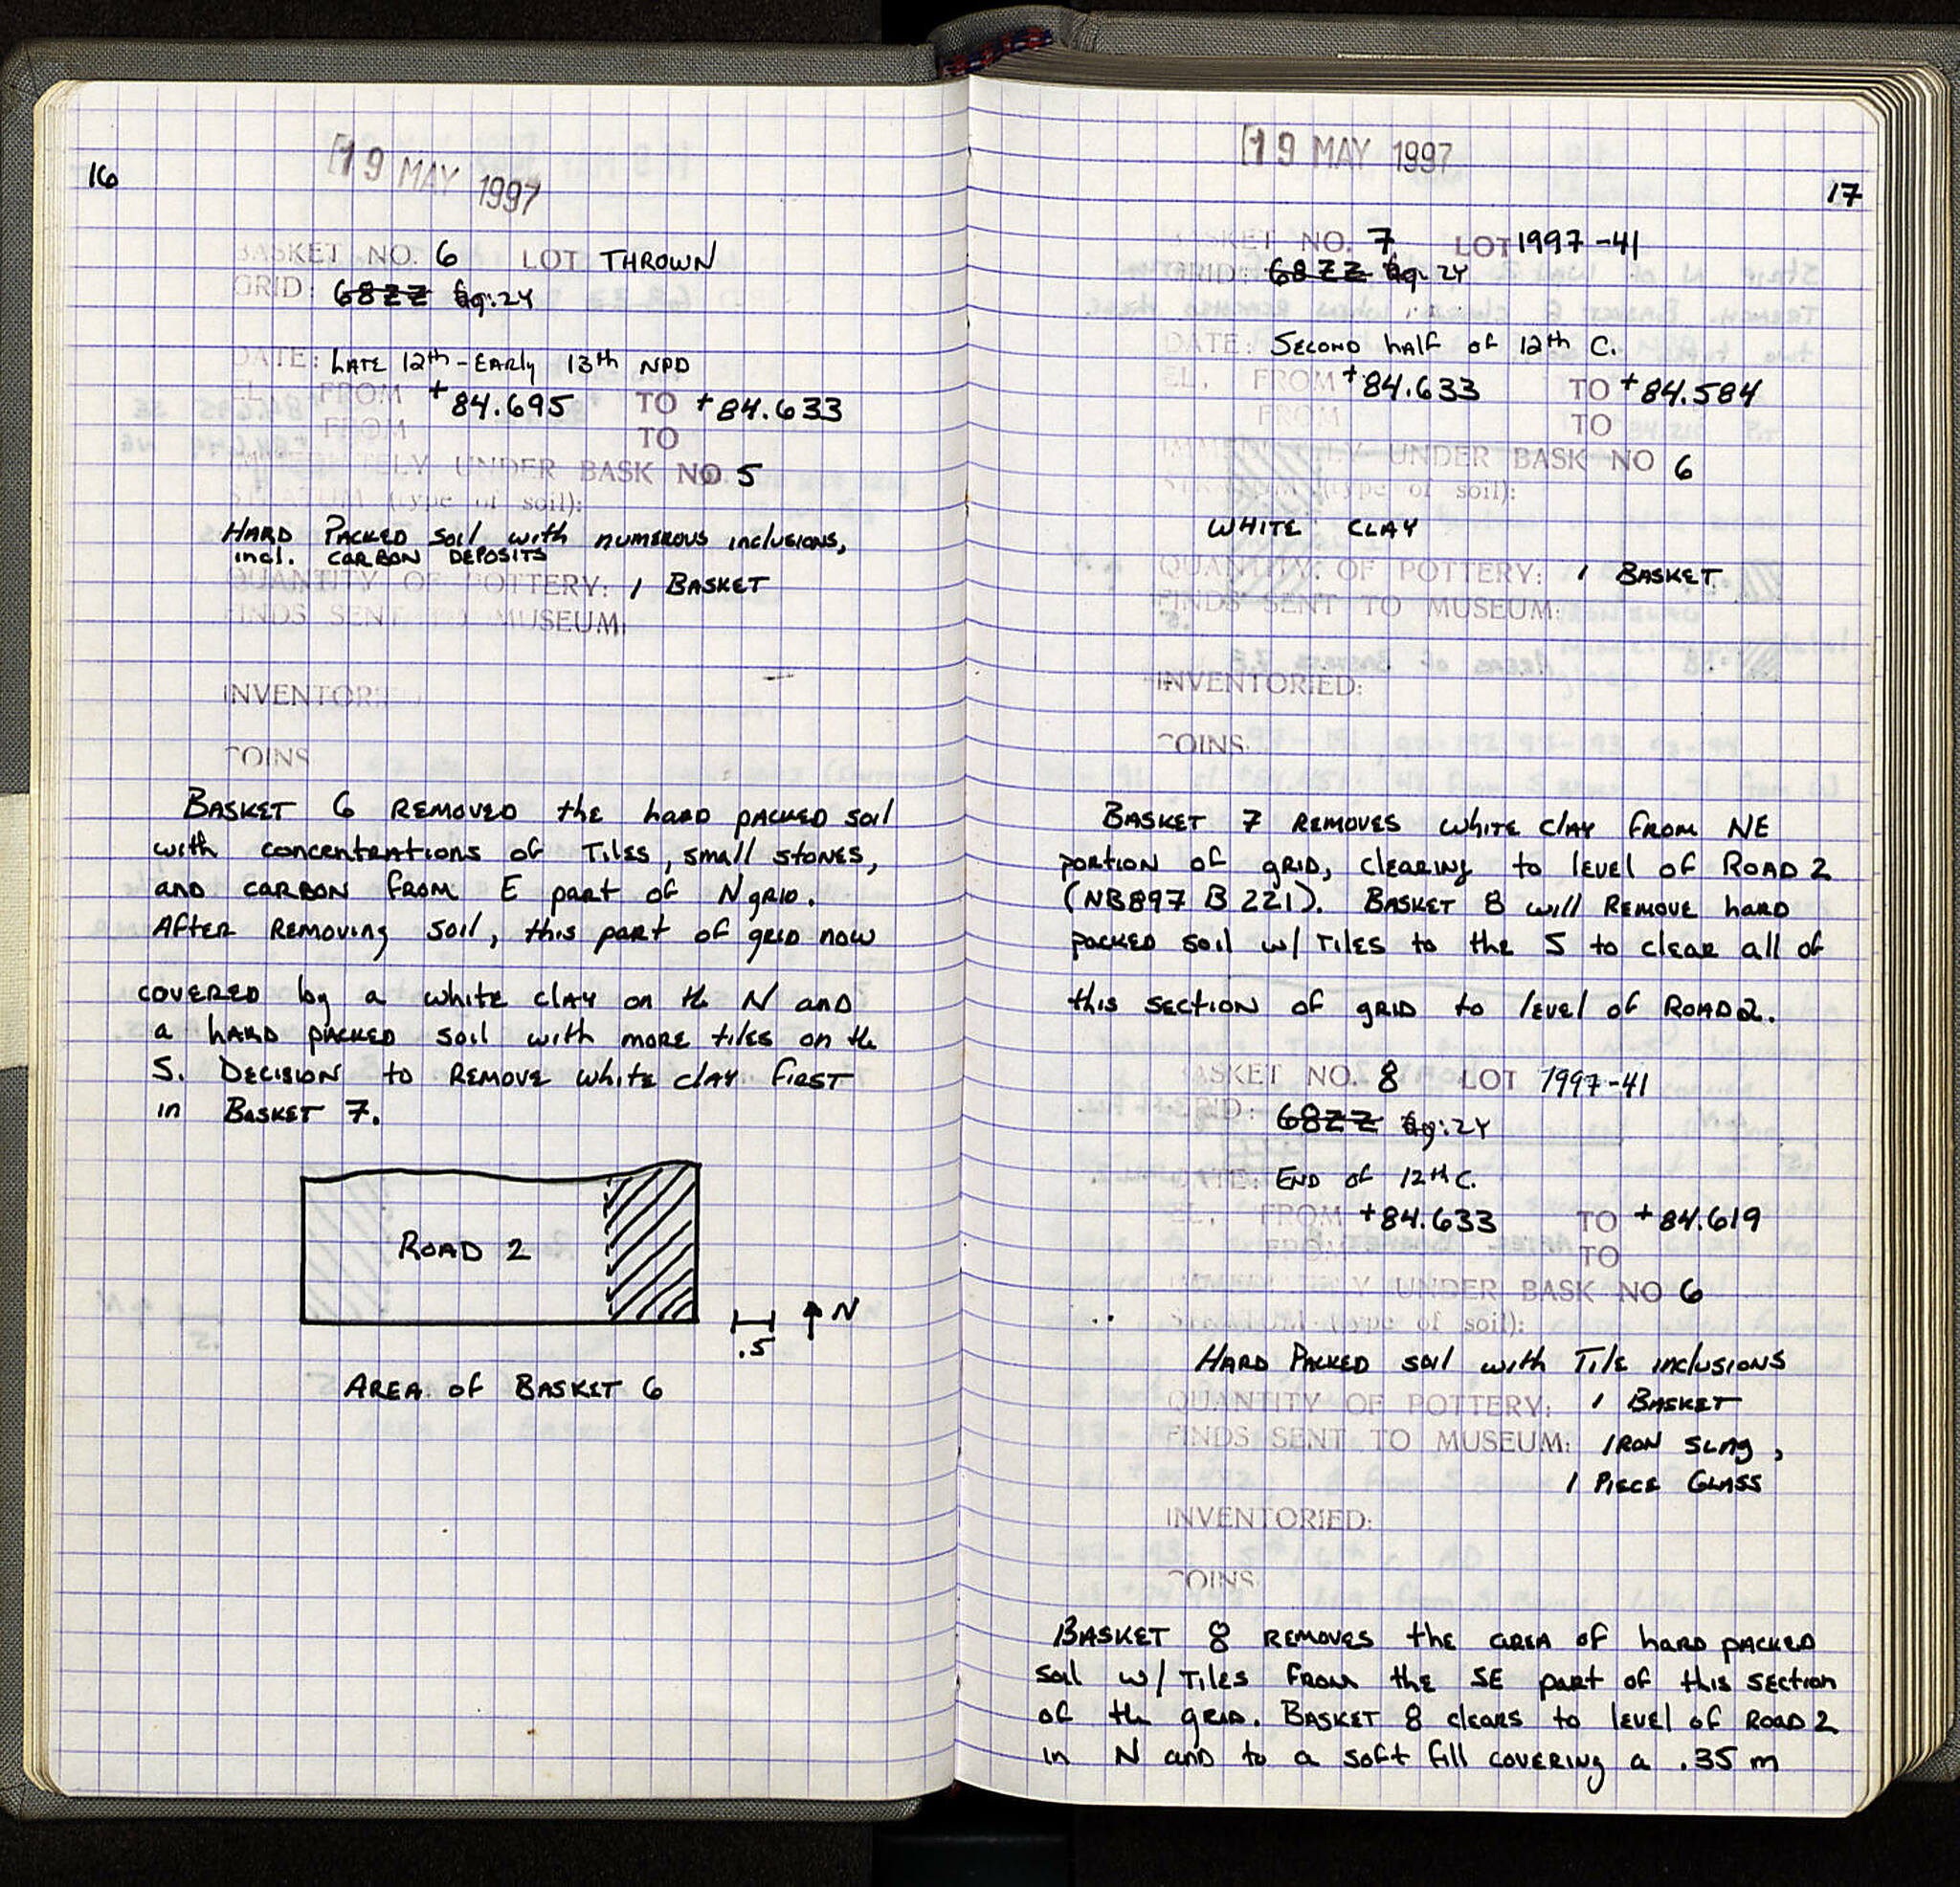 16
19 MAY 1997
BASKET NO. 6 LOT THROWN
GRID: 68ZZ Eq:2Y
DATE: LATE 12th - EARLY 13th NPD
EL. FROM +84.695 TO +84.633
FROM TO
IMMEDIATELY UNDER BASK NO 5
STRATUM (type of soil):
HARD PACKED soil with numerous inclusions,
incl. CARBON DEPOSITS
QUANTITY OF POTTERY: 1 BASKET
FINDS SENT TO MUSEUM:
INVENTORIED
COINS
BASKET 6 REMOVED the hard packed soil
with concentrations of Tiles, small stones,
and carbon from E part of N grid.
After removing soil, this part of grid now
covered by a white clay on the N and
a hard packed soil with more tiles on the
S. Decision to remove white clay first
in Basket 7.
ROAD 2
.5
N
AREA OF BASKET 6
19 MAY 1997
17
BASKET NO. 7 LOT 1997-41
GRID: 68ZZ Eq:2Y
DATE: Second half of 12th C.
EL. FROM +84.633 TO +84.584
FROM TO
IMMEDIATELY UNDER BASK NO 6
STRATUM (type of soil):
WHITE CLAY
QUANTITY OF POTTERY: 1 BASKET
FINDS SENT TO MUSEUM:
INVENTORIED:
COINS:
BASKET 7 REMOVES white clay from NE
portion of grid, clearing to level of ROAD 2
(NB897 B 221). BASKET 8 will remove hard
packed soil w/ Tiles to the S to clear all of
this section of grid to level of ROAD 2.
BASKET NO. 8 LOT 1997-41
GRID: 68ZZ Eq:2Y
DATE: END of 12th C.
EL. FROM +84.633 TO +84.619
FROM TO
IMMEDIATELY UNDER BASK NO 6
STRATUM (type of soil):
HARD PACKED soil with Tile inclusions
QUANTITY OF POTTERY: 1 BASKET
FINDS SENT TO MUSEUM: IRON SLAG,
1 PIECE GLASS
INVENTORIED:
COINS
BASKET 8 REMOVES the area of hard packed
soil w/ Tiles from the SE part of this section
of the grid. BASKET 8 clears to level of ROAD 2
in N and to a soft fill covering a .35 m